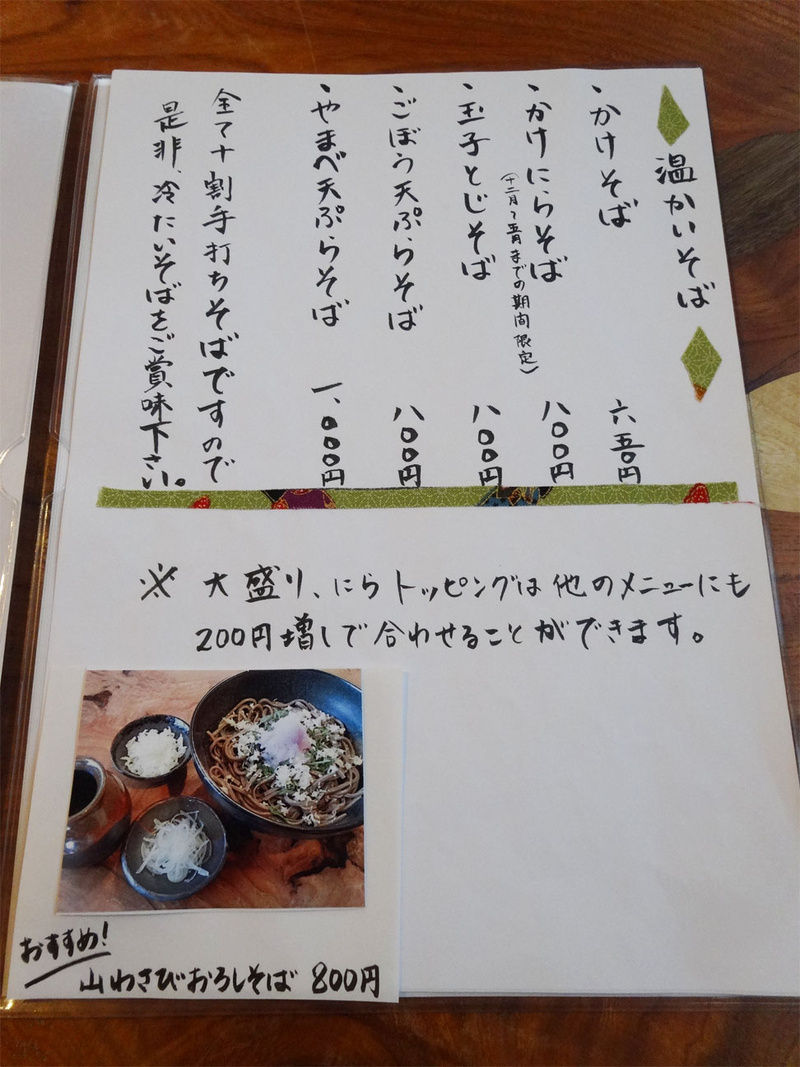 温かいそば
・かけそば 六五〇円
・かけにらそば 八〇〇円
(十二月〜五月までの期間限定)
・玉子とじそば 八〇〇円
・ごぼう天ぷらそば 八〇〇円
・やまべ天ぷらそば 一、〇〇〇円
全て十割手打ちそばですので
是非、冷たいそばをご賞味下さい。
※ 大盛り、にらトッピングは他のメニューにも
200円増しで合わせることができます。
おすすめ!
山わさびおろしそば 800円